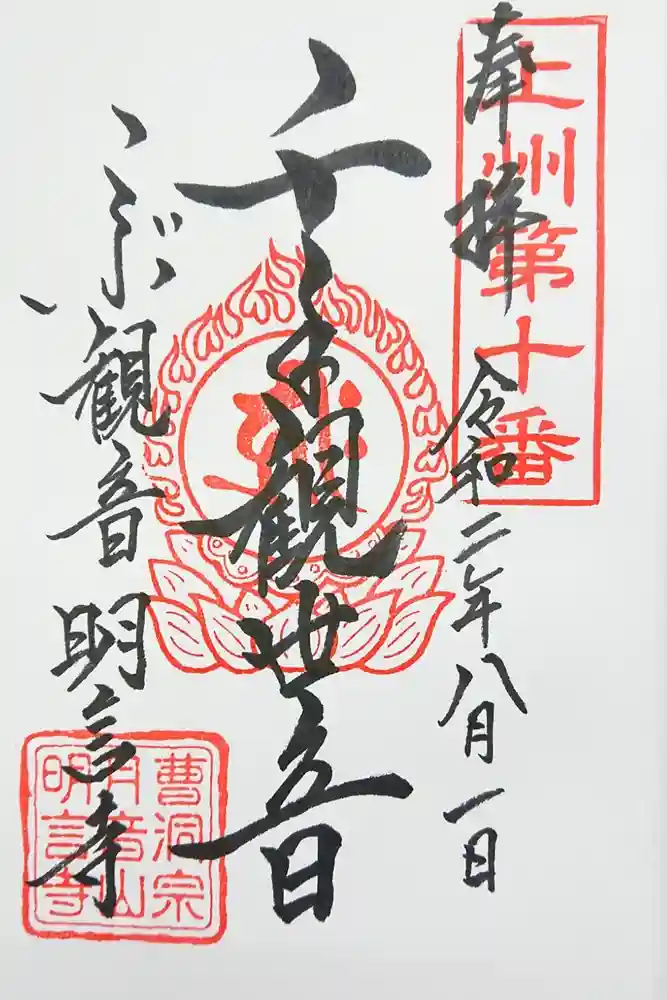 奉拝 令和二年八月一日
上州第十番
千手観世音
こぶ観音 明言寺
曹洞宗
月音山
明言寺